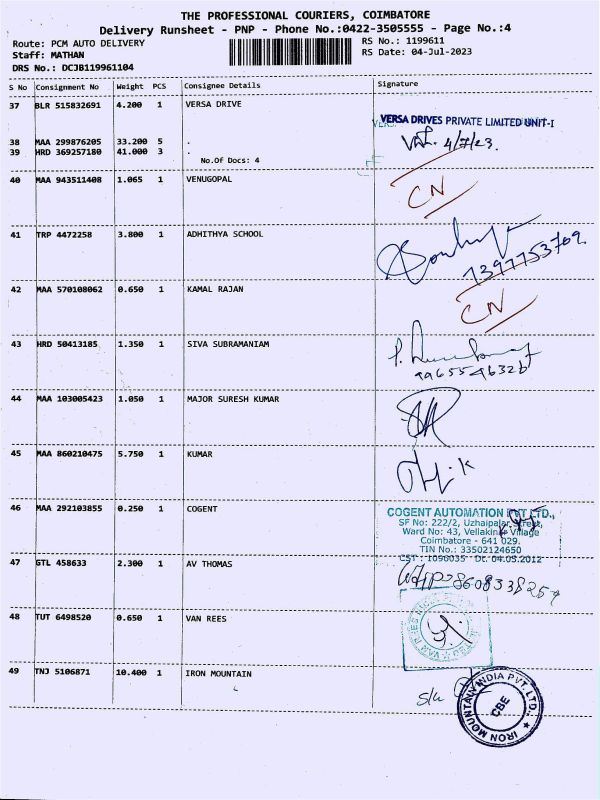 THE PROFESSIONAL COURIERS, COIMBATORE
Delivery Runsheet - PNP - Phone No.:0422-3505555 - Page No.:4
Route: PCM AUTO DELIVERY RS No.: 1199611
Staff: MATHAN RS Date: 04-Jul-2023
DRS No.: DCJB119961104
S No Consignment No Weight PCS Consignee Details Signature
37 BLR 515832691 4.200 1 VERSA DRIVE
VERSA DRIVES PRIVATE LIMITED UNIT-I
38 MAA 299876205 33.200 5 . 4/7/23.
39 HRD 369257180 41.000 3 .
No.Of Docs: 4
40 MAA 943511408 1.065 1 VENUGOPAL
CN
41 TRP 4472258 3.800 1 ADHITHYA SCHOOL
7397753769.
42 MAA 570108062 0.650 1 KAMAL RAJAN
CN
43 HRD 50413185 1.350 1 SIVA SUBRAMANIAM
9965546326
44 MAA 103005423 1.050 1 MAJOR SURESH KUMAR
45 MAA 860210475 5.750 1 KUMAR
46 MAA 292103855 0.250 1 COGENT
COGENT AUTOMATION PVT LTD.,
SF No: 222/2, Uzhaipalar Street,
Ward No: 43, Vellakinar Village
Coimbatore - 641 029.
TIN No.: 33502124650
CST : 1096035 Dt. 04.05.2012
47 GTL 458633 2.300 1 AV THOMAS
8608338259
48 TUT 6498520 0.650 1 VAN REES
49 TNJ 5106871 10.400 1 IRON MOUNTAIN
IRON MOUNTAIN INDIA PVT. LTD.
CBE